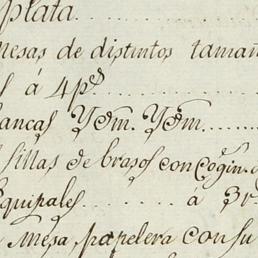 plata
mesas de distintos tamañ
s á 4 p.s
ancas Ydm. Ydm.
sillas de brasos con Cogin.
equipales á 3 r
Mesa papelera con su